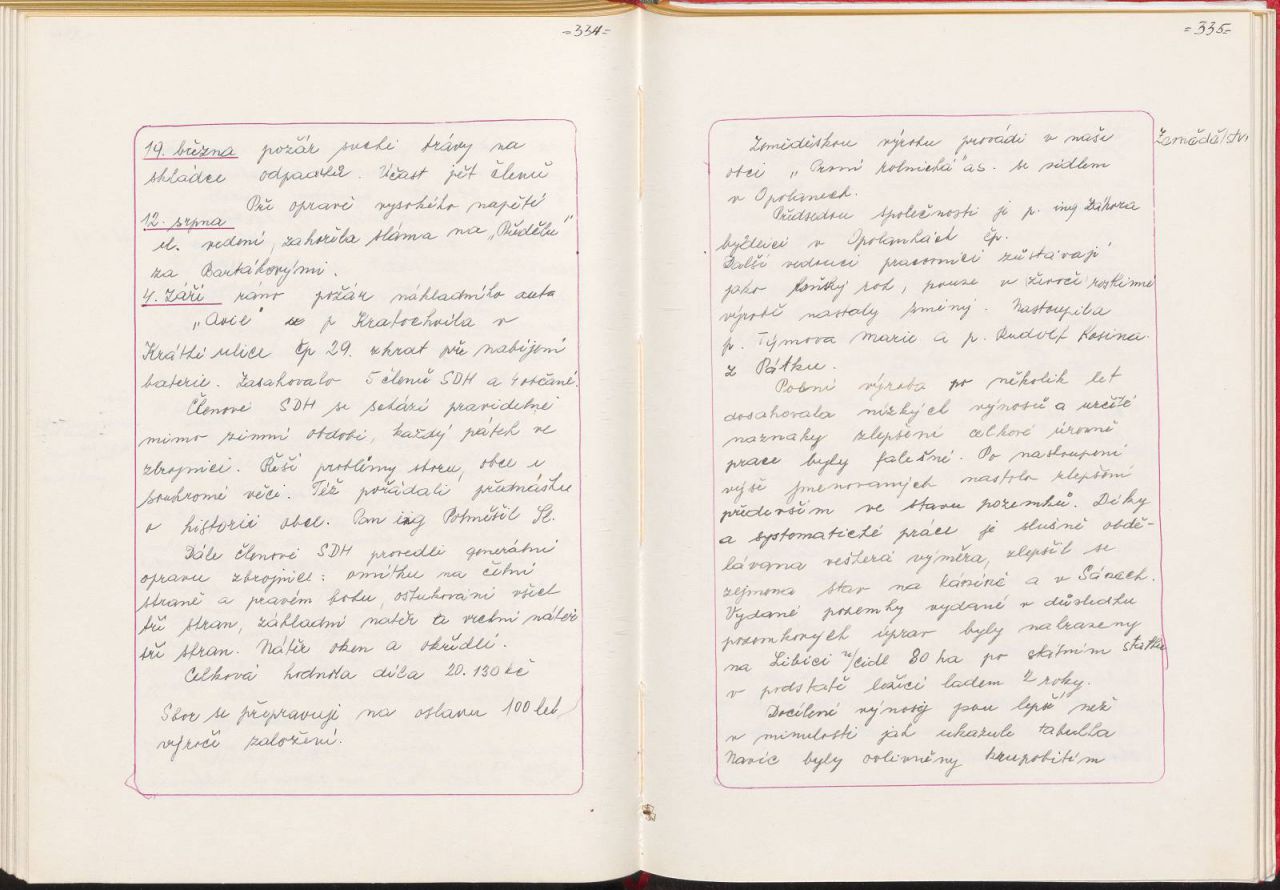 =334=
19. března požár suché trávy na
skládce odpadků. Účast pět členů
Při opravě vysokého napětí
12. srpna
el. vedení, zahořela sláma na „Předělu"
za Bartákovými.
4. Září ráno požár nákladního auta
„Avie" p Kratochvíla v
Krátké ulice čp 29. zkrat při nabíjení
baterie. Zasahovalo 5 členů SDH a 4 občané.
Členové SDH se schází pravidelně
mimo zimní období, každý pátek ve
zbrojnici. Řeší problémy sboru, obce i
soukromé věci. Též pořádali přednášku
o historii obce. Pan ing Potměšil St.
Dále členové SDH provedli generální
opravu zbrojnice: omítku na čelní
straně a pravém boku, oštukování všech
tří stran, základní nátěr a vrchní nátěr
tří stran. Nátěr oken a okřídlí.
Celková hodnota díla 20.130 kč
Sbor se připravuje na oslavu 100 let
výročí založení.
=335=
Zemědělství
Zemědělskou výrobu provádí v naše
obci „První rolnická" as. se sídlem
v Opolanech.
Předsedou společnosti je p. ing Záhora
bydlící v Opolankách čp.
Další vedoucí pracovníci zůstávají
jako loňský rok, pouze v živoči rostlinné
výrobě nastaly změny. Nastoupila
p. Týmova Marie a p. Rudolf Kosina
z Pátku.
Polní výroba po několik let
dosahovala nízkých výnosů a určité
náznaky zlepšení celkové úrovně
práce byly falešné. Po nastoupení
výše jmenovaných nastalo zlepšení
především ve stavu pozemků. Díky
a systematické práce je slušně obdě-
lávana veškerá výměra, zlepšil se
zejmena stav na Kársině a v Sánech.
Vydané pozemky vydané v důsledku
pozemkových úprav byly nahrazeny
na Libici n/cidl 80 ha po státním statku
v podstatě ležící ladem 2 roky.
Docílené výnosy jsou lepší než
v minulosti jak ukazule tabulka
Navíc byly ovlivněny krupobitím